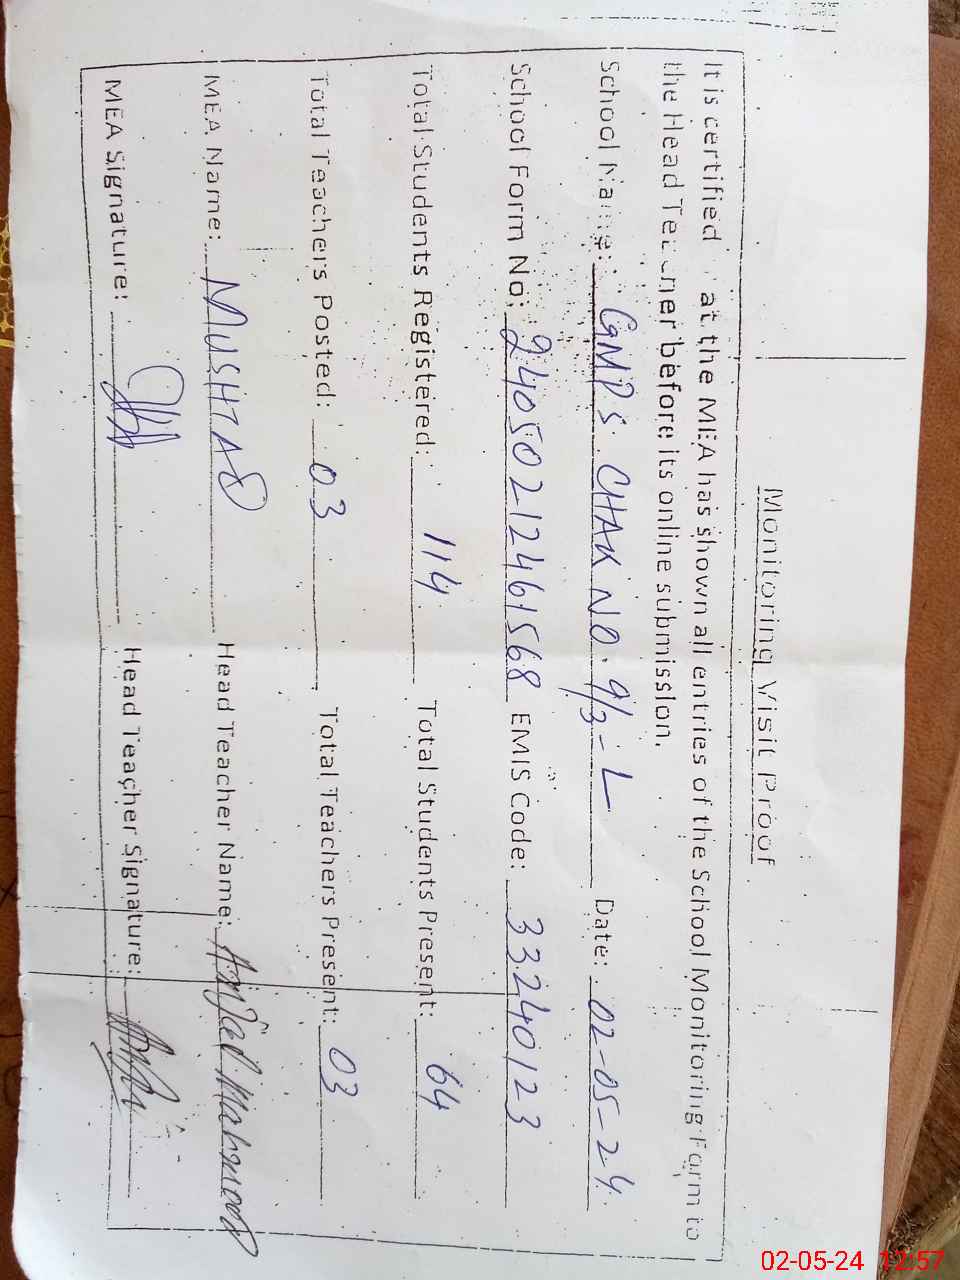 Monitoring Visit Proof
It is certified at the MEA has shown all entries of the School Monitoring Form to
the Head Teacher before its online submission.
School Name: GMPS CHAK NO. 9/3-L Date: 02-05-24
School Form No: 240502121461568 EMIS Code: 33240123
Total Students Registered: 114 Total Students Present: 64
Total Teachers Posted: 03 Total Teachers Present: 03
MEA Name: MUSHTAQ Head Teacher Name: Amjad Mahmood
MEA Signature: Head Teacher Signature:
02-05-24 12:57